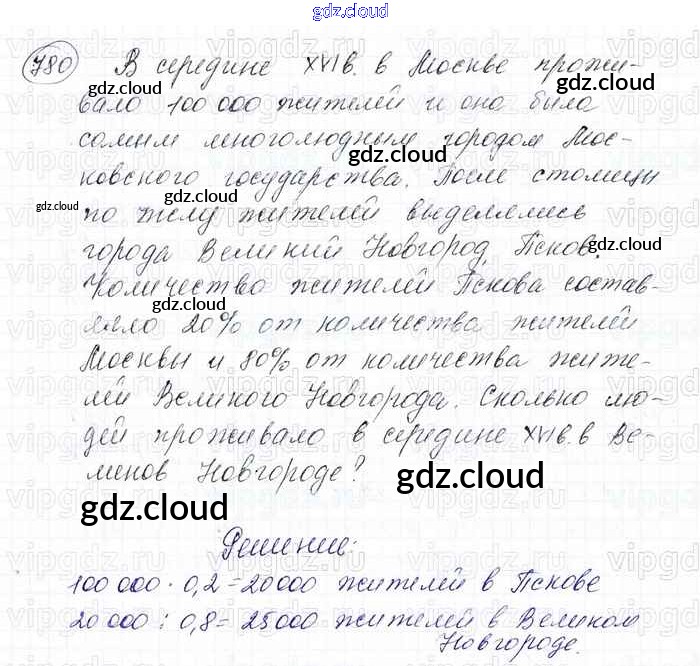 gdz.cloud
780 В середине XVI в. в Москве прожи-
вало 100 000 жителей и она была
самым многолюдным городом Мос-
gdz.cloud
ковского государства. После столицы
gdz.cloud
gdz.cloud
по числу жителей выделялись
города Великий Новгород, Псков.
gdz.cloud
Количество жителей Пскова состав-
gdz.cloud
ляло 20% от количества жителей
Москвы и 80% от количества жите-
gdz.cloud
лей Великого Новгорода. Сколько лю-
дей проживало в середине XVI в. в Ве-
ликов Новгороде?
gdz.cloud
gdz.cloud
Решение:
100 000 · 0,2 = 20000 жителей в Пскове
20 000 : 0,8 = 25000 жителей в Великом
Новгороде.